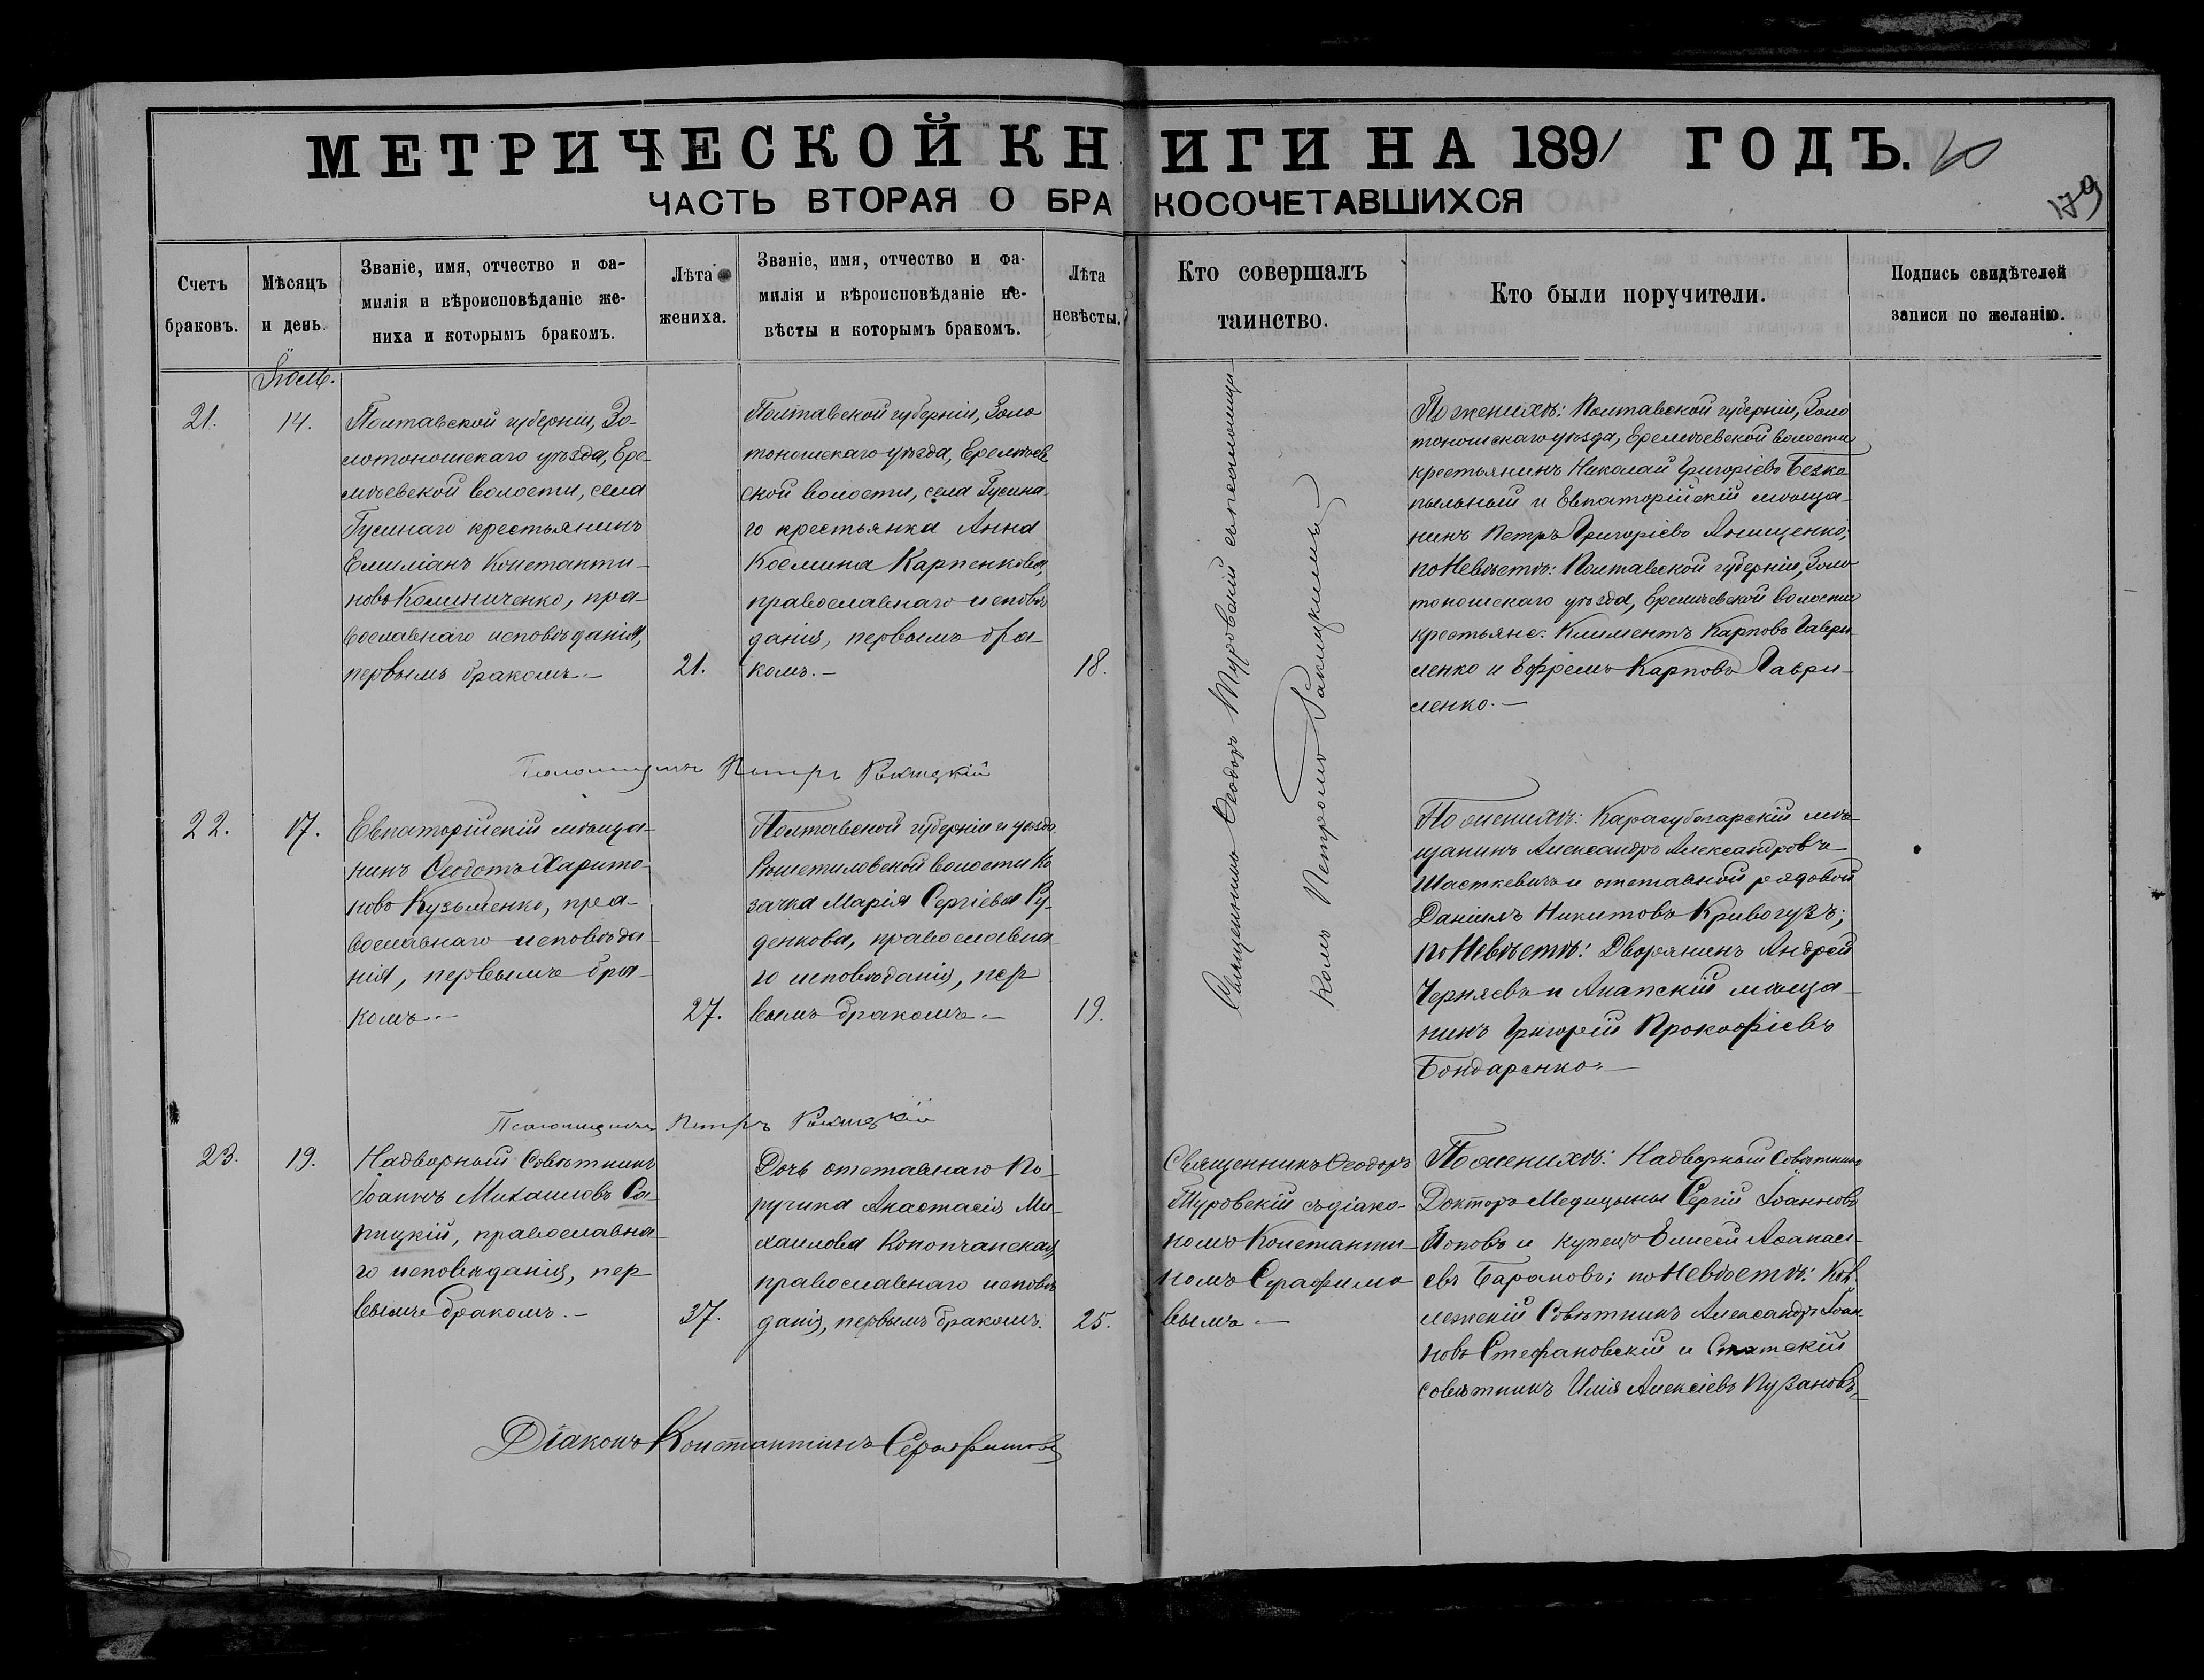 МЕТРИЧЕСКОЙ КНИГИ НА 1891 ГОДЪ.
179
ЧАСТЬ ВТОРАЯ О БРАКОСОЧЕТАВШИХСЯ
Счетъ
браковъ.
Мѣсяцъ
и день.
Званіе, имя, отчество и фа-
милія и вѣроисповѣданіе же-
ниха и которымъ бракомъ.
Лѣта
жениха.
Званіе, имя, отчество и фа-
милія и вѣроисповѣданіе не-
вѣсты и которымъ бракомъ.
Лѣта
невѣсты.
Кто совершалъ
таинство.
Кто были поручители.
Подпись свидѣтелей
записи по желанію.
Іюль.
21.
14.
Полтавской губерніи, Зо-
лотоношскаго уѣзда, Ере-
мѣевской волости, села
Гусинаго крестьянинъ
Емиліанъ Константи-
новъ Калиниченко, пра-
вославнаго исповѣданія,
первымъ бракомъ.-
21.
Полтавской губерніи, Золо
тоношскаго уѣзда, Еремѣев
ской волости, села Гусина
го крестьянка Анна
Космина Карпенкова,
православнаго исповѣ
данія, первымъ бра-
комъ.-
18.
Священникъ Ѳеодоръ Туровскій съ псаломщи-
комъ Петромъ Ракицкимъ
По женихѣ: Полтавской губерніи, Золо
тоношскаго уѣзда, Еремѣевской волости
крестьянинъ Николай Григоріевъ Безко
пыльный и Евпаторійскій мѣща-
нинъ Петръ Григоріевъ Анищенко;
по Невѣстѣ: Полтавской губерніи, Золо
тоношскаго уѣзда, Еремѣевской волости
крестьяне: Климентъ Карповъ Гаври
ленко и Ефремъ Карповъ Гаври-
ленко.-
Псаломщикъ Петръ Ракицкій
22.
17.
Евпаторійскій мѣща-
нинъ Ѳеодотъ Харито-
новъ Кузьменко, пра-
вославнаго исповѣда-
нія, первымъ бра-
комъ.-
27.
Полтавской губерніи и уѣзда
Рѣшетиловской волости ка
зачка Марія Сергіева Ру-
денкова, православна
го исповѣданія, пер
вымъ бракомъ.-
19.
По женихѣ: Карасубазарскій мѣ-
щанинъ Александръ Александровъ
Шасткевичъ и отставной рядовой
Даніилъ Никитовъ Кривогузъ;
по Невѣстѣ: Дворянинъ Андрей
Черняевъ и Анапскій мѣща-
нинъ Григорій Прокофіевъ
Бондаренко.-
Псаломщикъ Петръ Ракицкій
23.
19.
Надворный Совѣтникъ
Іоаннъ Михаиловъ Са-
пицкій, православна
го исповѣданія, пер
вымъ бракомъ.-
37.
Дочь отставнаго По-
ручика Анастасія Ми-
хаилова Конопчанская,
православнаго исповѣ
данія, первымъ бракомъ.
25.
Священникъ Ѳеодоръ
Туровскій съ діако-
номъ Константи-
номъ Серафимо
вымъ.-
По женихѣ: Надворный Совѣтникъ
Докторъ Медицины Сергій Іоанновъ
Поповъ и купецъ Елисей Аѳанасі-
евъ Барановъ; по Невѣстѣ: Кол
лежскій Совѣтникъ Александръ Іоан
новъ Стефановскій и Статскій
совѣтникъ Илія Алексіевъ Пузановъ.
Діаконъ Константинъ Серафимовъ